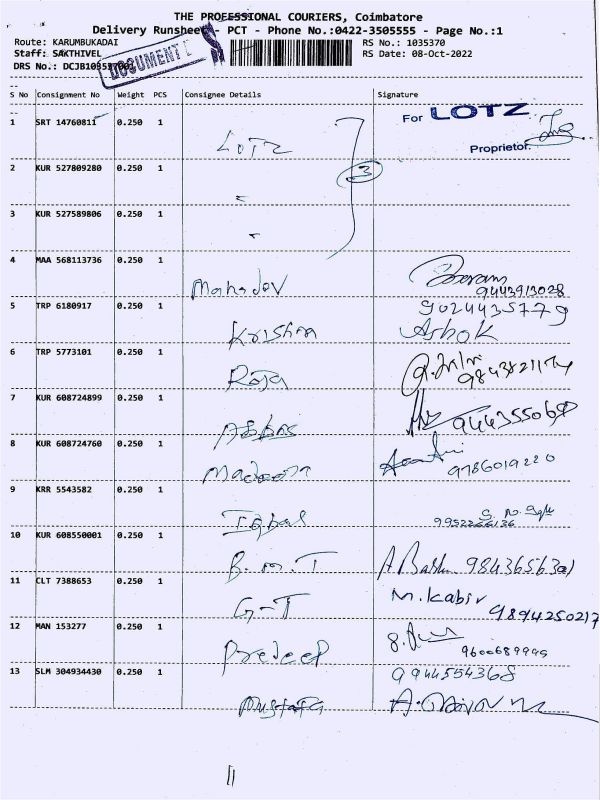 THE PROFESSIONAL COURIERS, Coimbatore
Delivery Runsheet - PCT - Phone No.:0422-3505555 - Page No.:1
Route: KARUMBUKADAI RS No.: 1035370
Staff: SAKTHIVEL RS Date: 08-Oct-2022
DRS No.:
DOCUMENT
S No Consignment No Weight PCS Consignee Details Signature
For LOTZ
1 SRT 14760811 0.250 1
LOTZ
Proprietor.
2 KUR 527809280 0.250 1
3
3 KUR 527589806 0.250 1
4 MAA 568113736 0.250 1
Mahadev 9443913028
5 TRP 6180917 0.250 1 9024435779
Krishna Ashok
6 TRP 5773101 0.250 1
Raja
7 KUR 608724899 0.250 1
Abbas
8 KUR 608724760 0.250 1
9786019220
9 KRR 5543582 0.250 1
Iqbal
10 KUR 608550001 0.250 1
B.M.T
11 CLT 7388653 0.250 1 M.Kabir
G-T 9894250217
12 MAN 153277 0.250 1
Predeep 9600689995
13 SLM 304934430 0.250 1 9944554368
Mustafa